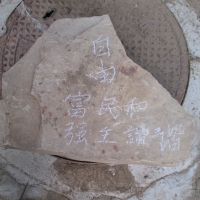 自由
富强
民主
和諧